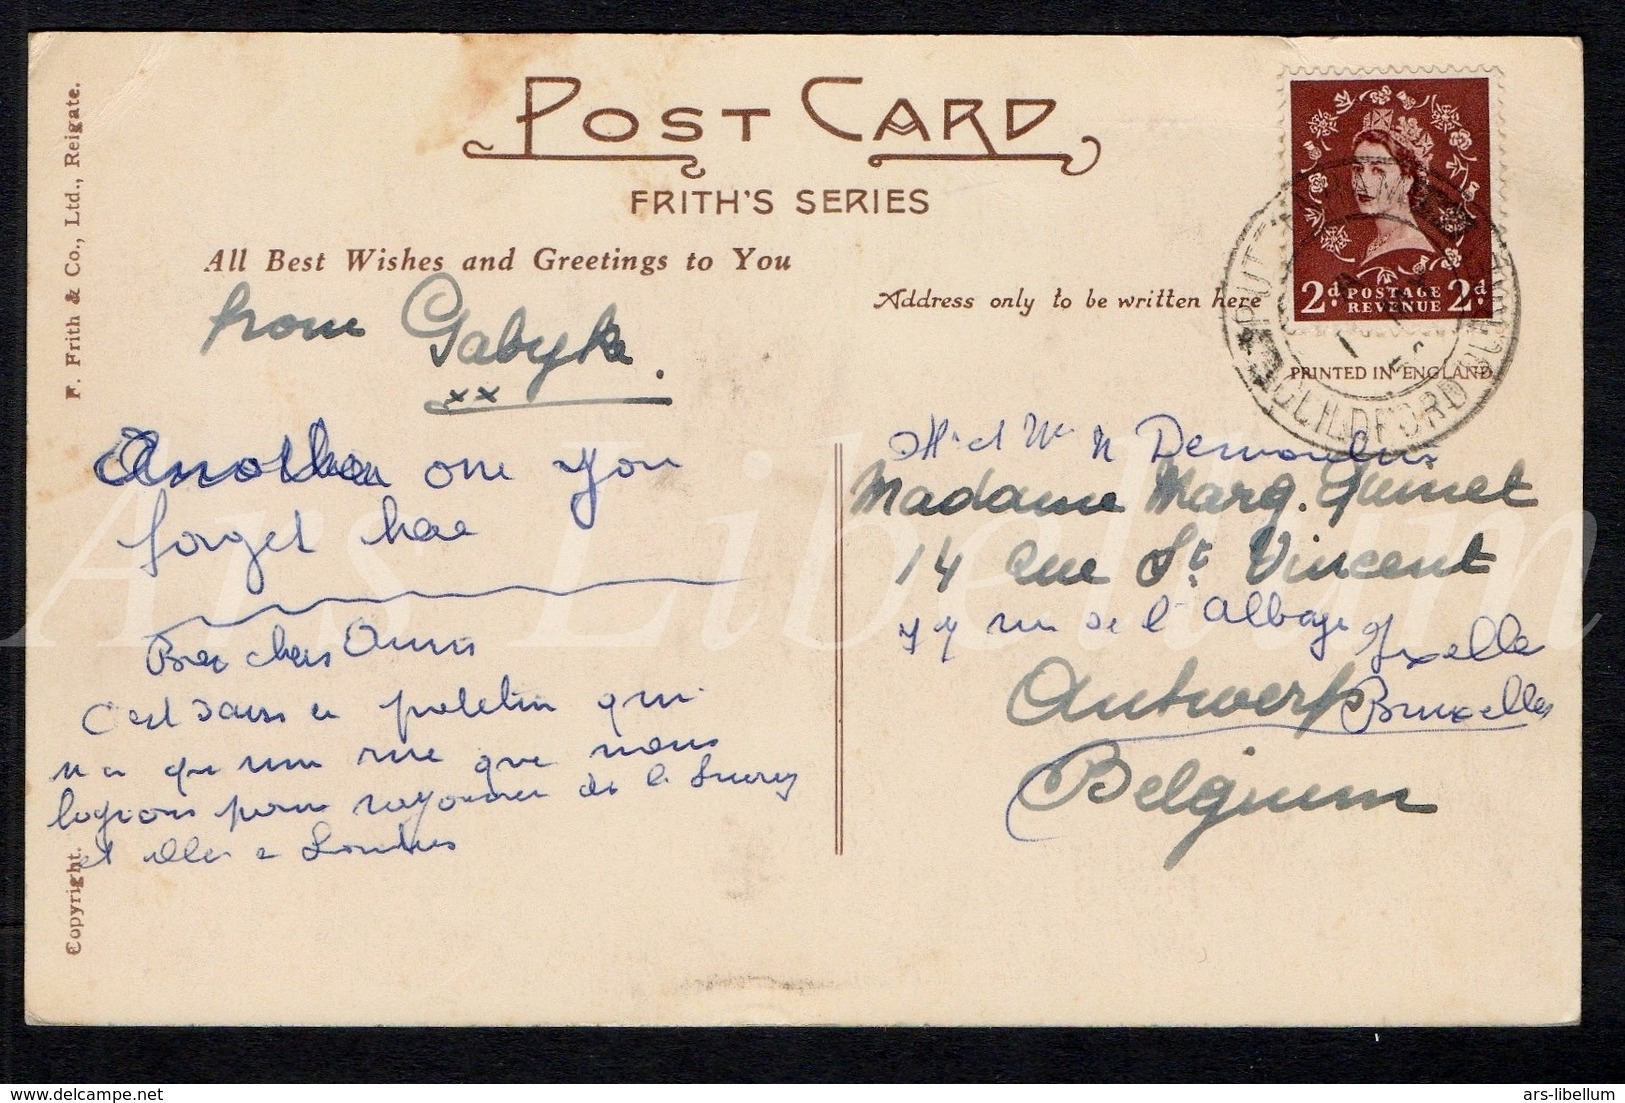 POST CARD
FRITH'S SERIES
All Best Wishes and Greetings to You
from Gabyka.
xx
Another one you
forget hae
Bien chers Amis
C'est dans ce patelin qui
n'a qu'une rue que nous
logions pour rayonner de le Surrey
et aller a Londres
F. Frith & Co., Ltd., Reigate.
Copyright.
Address only to be written here
2d. POSTAGE REVENUE 2d.
PRINTED IN ENGLAND
GUILDFORD
M et Me N Demoulin
Madame Marg. Guinet
14 rue St. Vincent
77 rue de l'Abbaye Ixelles
Antwerp Bruxelles
Belgium
Ars Libellum
ars-libellum